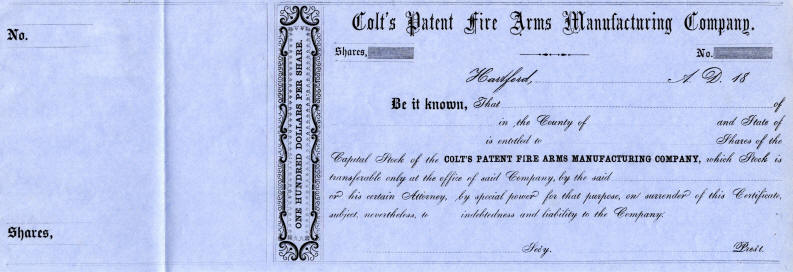 No.
Shares,
ONE HUNDRED DOLLARS PER SHARE.
Colt's Patent Fire Arms Manufacturing Company.
Shares, No.
Hartford, A. D. 18
Be it known, That of
in the County of and State of
is entitled to Shares of the
Capital Stock of the COLT'S PATENT FIRE ARMS MANUFACTURING COMPANY, which Stock is
transferable only at the office of said Company, by the said
or his certain Attorney, by special power for that purpose, on surrender of this Certificate,
subject, nevertheless, to indebtedness and liability to the Company.
Secy. Prest.